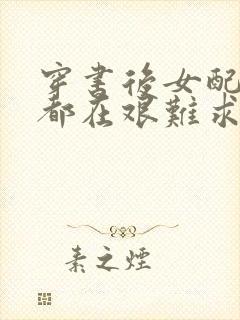 穿書後女配
都在艱難求
素之煙